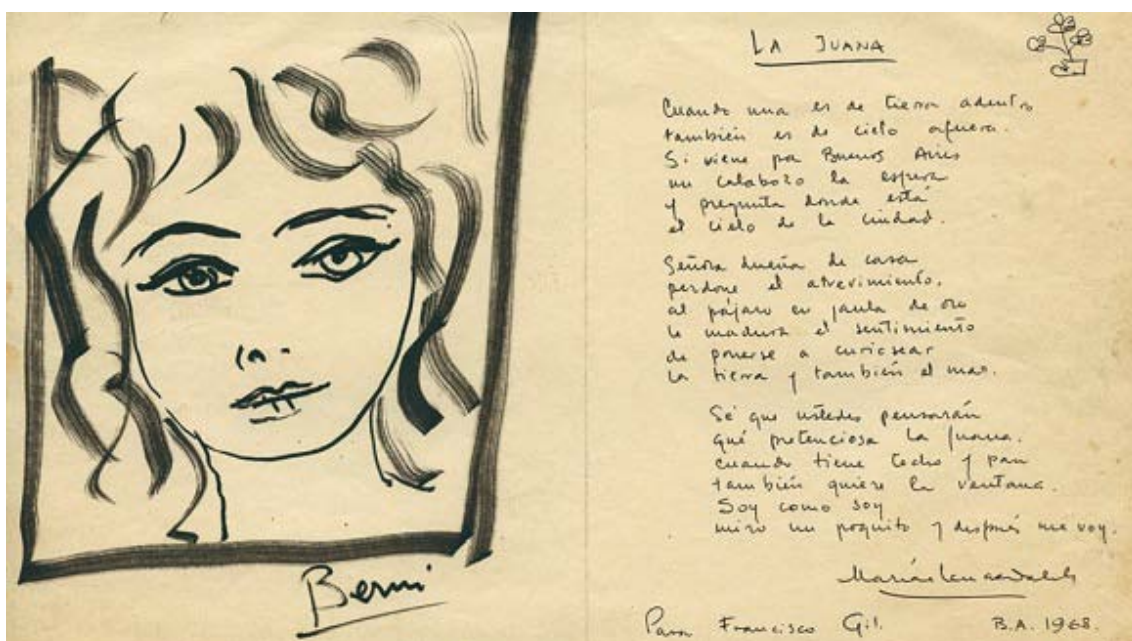 Berni
LA JUANA
Cuando una es de tierra adentro
también es de cielo afuera.
Si viene por Buenos Aires
un calabozo la espera
y pregunta donde está
el cielo de la ciudad.
Señora dueña de casa
perdone el atrevimiento,
al pájaro en jaula de oro
le madura el sentimiento
de ponerse a curiosear
la tierra y también el mar.
Sé que ustedes pensarán
qué pretenciosa la Juana.
cuando tiene techo y pan
también quiere la ventana.
Soy como soy
miro un poquito y después me voy.
Para Francisco Gil.
B.A. 1968.